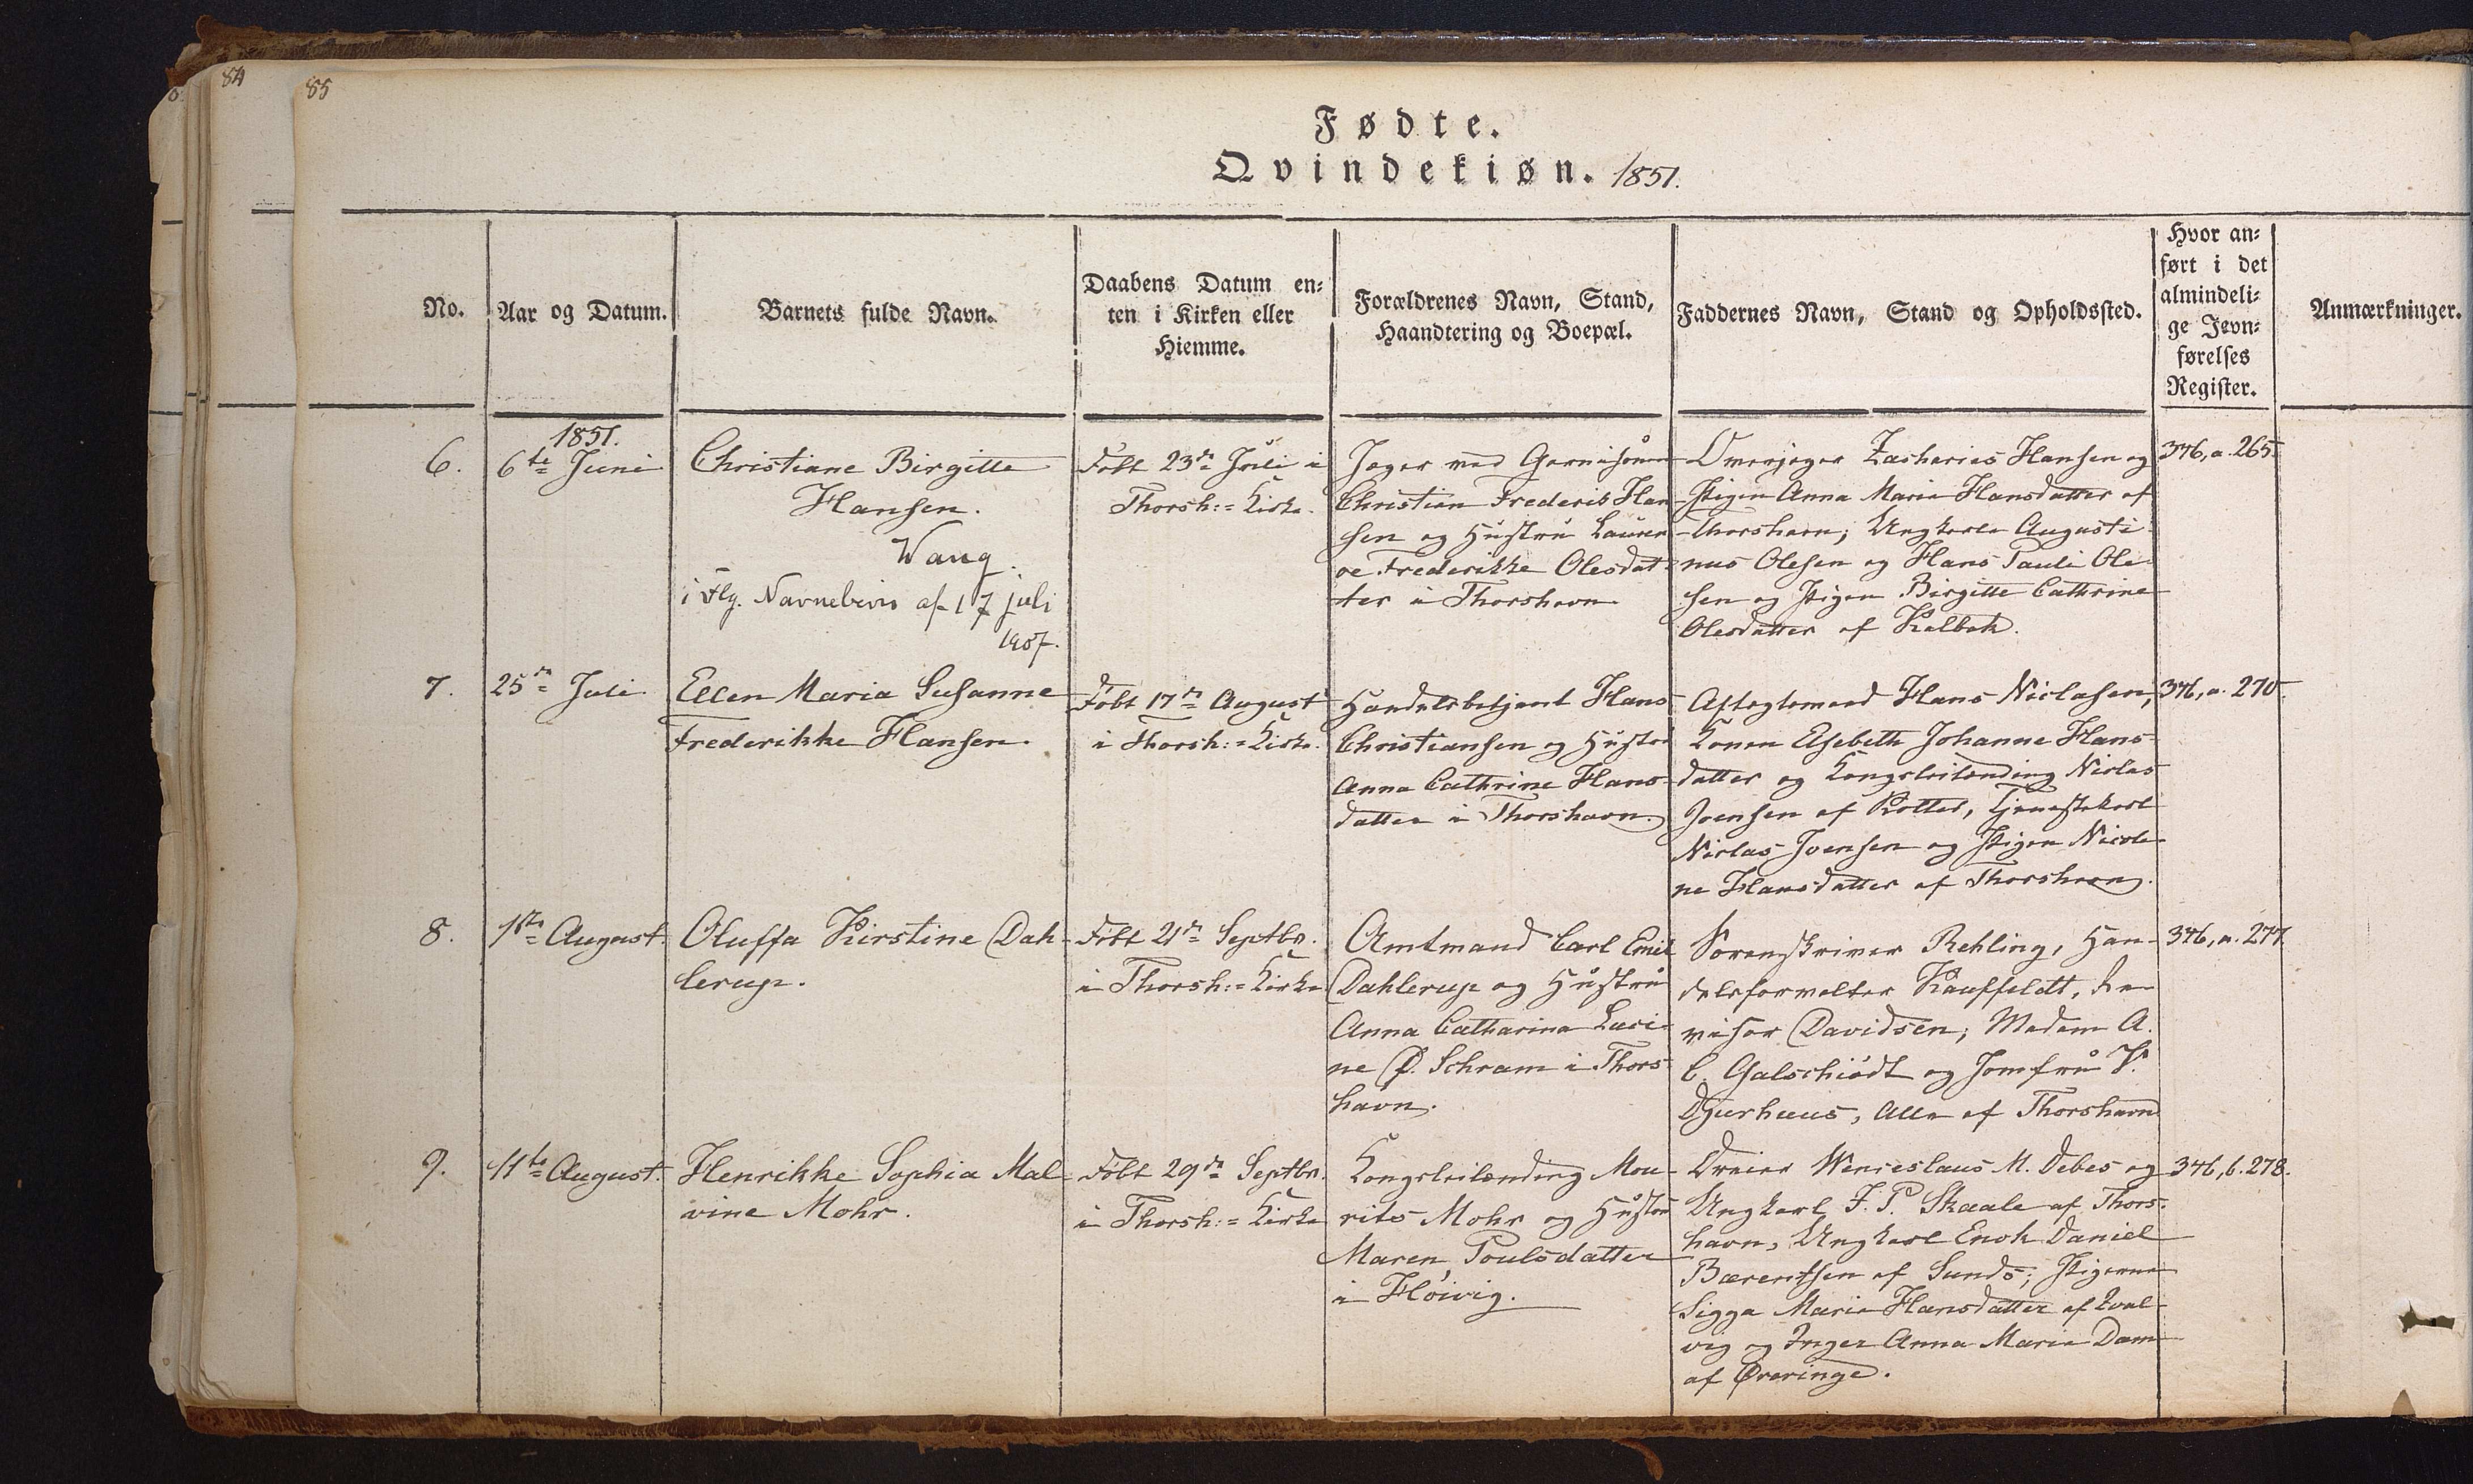 84
85
Fødte.
Qvindekiøn. 1851.
No.
Aar og Datum.
Barnets fulde Navn.
Daabens Datum en-
ten i Kirken eller
Hiemme.
Forældrenes Navn, Stand,
Haandtering og Boepæl.
Faddernes Navn, Stand og Opholdssted.
Hvor an-
ført i det
almindeli-
ge Jevn-
førelses
Register.
Anmærkninger.
6.
1851.
6te Juni
Christiane Birgitte
Hansen.
Wang.
i Flg. Navnebevis af 17 juli
1907.
Døbt 23de Juli i
Thorsh:= Kirke.
Jæger ved Garnisonen
Christian Frederik Han
sen og Hustru Lauren
ce Frederikke Olesdat
ter i Thorshavn
Overjæger Zacharias Hansen og
Pigen Anna Maria Hansdatter af
Thorshavn; Ungkarle Augusti
nus Olesen og Hans Pauli Ole-
sen og Pigen Birgitte Cathrine
Olesdatter af Kalbak.
346, a. 265.
7.
25de Juli
Ellen Maria Susanne
Frederikke Hansen.
Døbt 17de August
i Thorsh:= Kirke.
Handelsbetjent Hans
Christiansen og Hustru
Anna Cathrine Hans-
datter i Thorshavn.
Aftægtsmand Hans Niclasen,
Konen Elsebeth Johanne Hans-
datter og Kongsleilænding Niclas
Joensen af Kolter, Tjenestekarl
Niclas Joensen og Pigen Nicole-
ne Hansdatter af Thorshavn.
346, a. 270.
8.
1ste August.
Oluffa Kirstine Dah-
lerup.
Døbt 21de Septbr.
i Thorsh:= Kirke
Amtmand Carl Emil
Dahlerup og Hustru
Anna Catharina Luci-
ne f. Schram i Thors
havn.
Sorenskriver Rehling, Han-
delsforvalter Kauffeldt, Re-
visor Davidsen; Madam A.
C. Galschiödt og Jomfru V.
Djurhuus, Alle af Thorshavn
346, a. 277.
9.
11te August.
Henrikke Sophia Mal
vine Mohr.
Døbt 29de Septbr.
i Thorsh:= Kirke
Kongsleilænding Mou-
rits Mohr og Hustru
Maren Poulsdatter
i Höivig.
Dreier Wenceslaus M. Debes og
Ungkarl J. P. Skaale af Thors-
havn, Ungkarl Enok Daniel
Bærentsen af Sund; Pigerne
Sigga Maria Hansdatter af Qval-
vig og Inger Anna Maria Dam
af Øreringe.
346, b. 278.